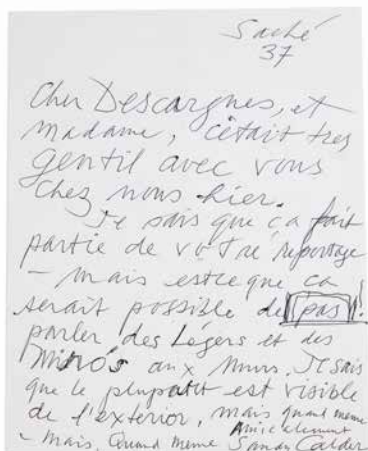 Saché
37
Cher Descargues, et
madame, c'était tres
gentil avec vous
chez nous hier.
Je sais que ça fait
partie de votre reportage
- mais est ce que ca
serait possible de pas!
parler des Légers et des
Mirós aux murs. Je sais
que le plupart est visible
de l'exterior, mais quand meme
Amicalement
- mais, Quand meme Sandy Calder